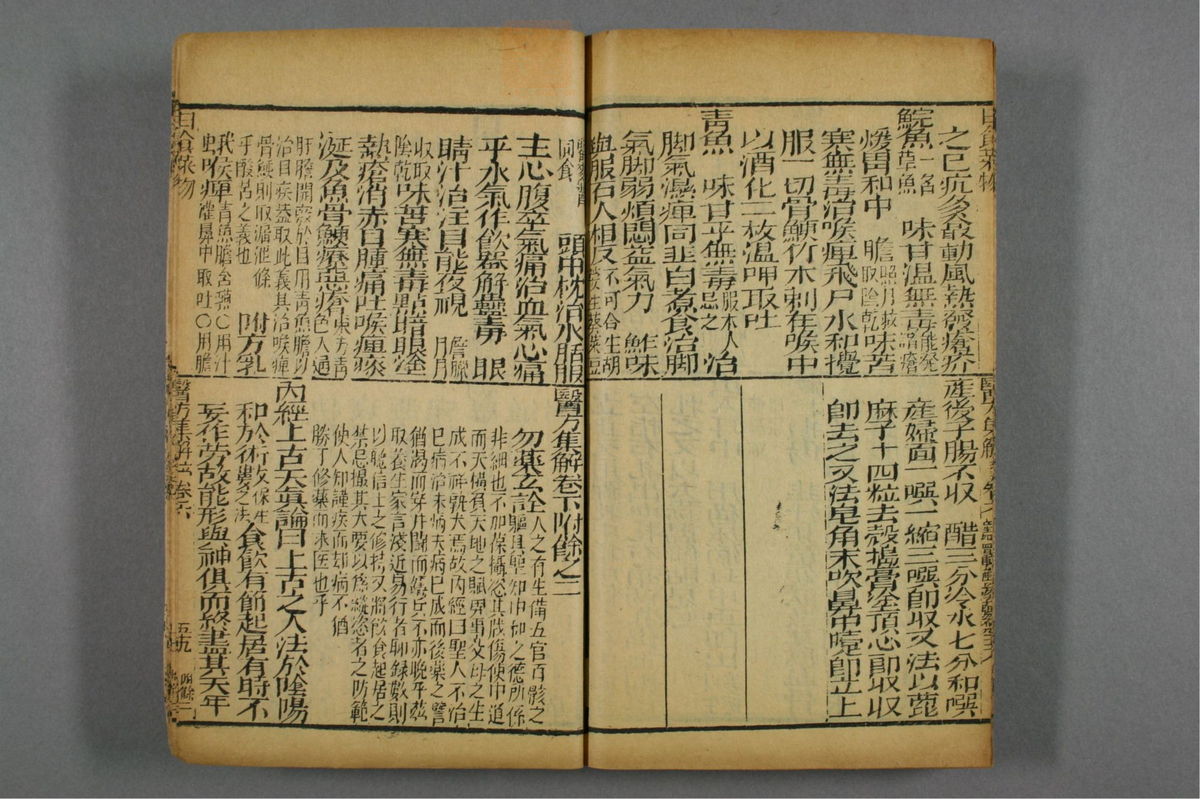 之已疣多發動風熱發瘡疥
鯇魚一名草魚 味甘溫無毒能發諸瘡
煖胃和中 膽臘月收取陰乾味苦
寒無毒治喉痺飛尸水和攪
服一切骨鯁竹木刺在喉中
以酒化二枚溫呷取吐
青魚 味甘平無毒服术人忌之 治
脚氣濕痺同韭白煮食治脚
氣脚弱煩悶益氣力 鮓味
與服石人相反不可合生胡荽生葵菜豆
同食 頭中枕治水腫服
主心腹卒氣痛治血氣心痛
平水氣作飲器解蠱毒 眼
睛汁治注目能夜視 膽臘月
收取陰乾味苦寒無毒點暗眼塗
熱瘡消赤目腫痛吐喉痺痰
涎及魚骨鯁療惡瘡東方青色入通
肝膽開竅於目用青魚膽以
治目疾蓋取此義其治喉痺
骨鯁則取漏泄係
乎酸苦之義也 附方乳
蛾喉痺青魚膽含嚥○用汁
灌鼻中取吐○用膽
日食菜物
產後子腸不收 醋三分冷水七分和噀
產婦面一噀一縮三噀即收又法以蓖
麻子十四粒去殼搗膏塗頂心即收收
即去之又法皂角末吹鼻中嚏即止上
醫方集解卷下附餘之二
勿藥玄詮人之有生備五官百骸之
軀具聖知中和之德所係
非細也不加保攝恣其戕傷使中道
而夭橫負天地之賦畀事父母之生
成不祥孰大焉故內經曰聖人不治
已病治未病夫病已成而後藥之譬
猶渴而穿井鬭而鑄兵不亦晚乎茲
取養生家言淺近易行者聊錄數則
以聽信士之修持又將飲食起居之
禁忌撮其大要以為縱恣者之防範
使人知謹疾而却病不猶
勝于修藥而求醫也乎
內經上古天真論曰上古之人法於陰陽
和於術數食飲有節起居有時不
妄作勞故能形與神俱而終盡其天年
醫方集解 卷六
五九